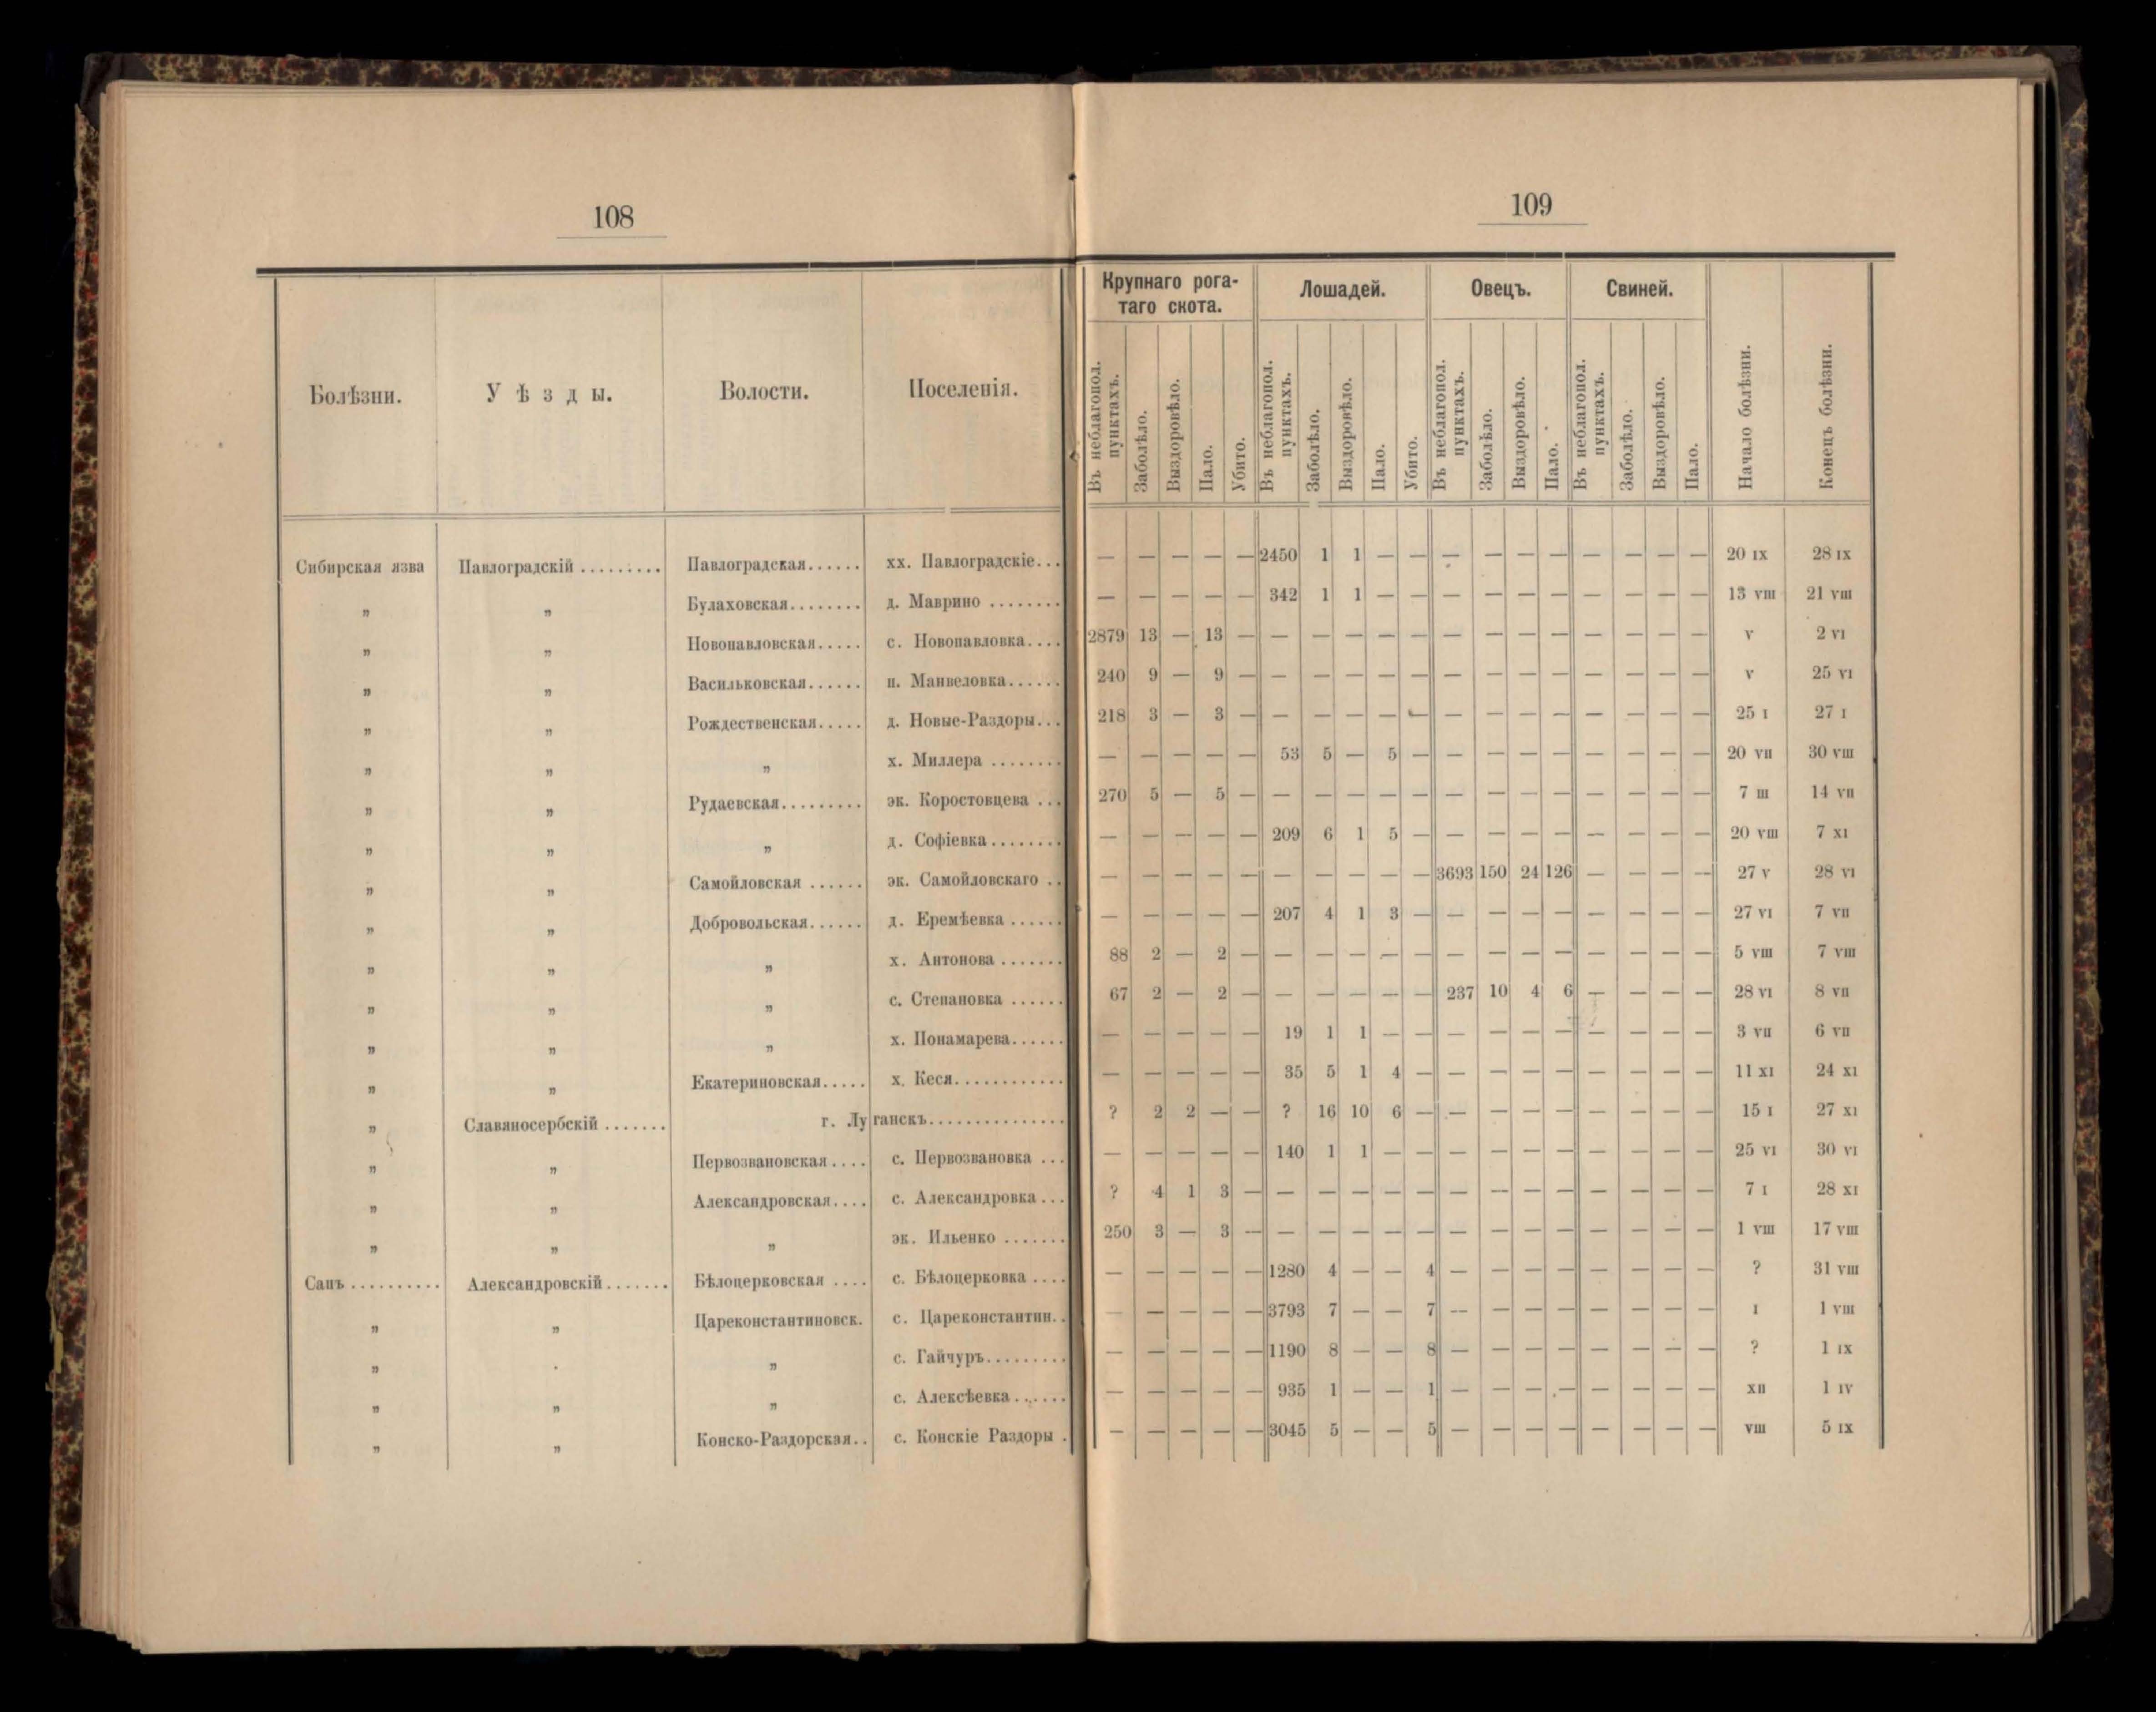 108
109
Болѣзни. Уѣзды. Волости. Поселенія.
Крупнаго рогатаго скота. Лошадей. Овецъ. Свиней.
Въ неблагопол. пунктахъ. Заболѣло. Выздоровѣло. Пало. Убито. Въ неблагопол. пунктахъ. Заболѣло. Выздоровѣло. Пало. Убито. Въ неблагопол. пунктахъ. Заболѣло. Выздоровѣло. Пало. Въ неблагопол. пунктахъ. Заболѣло. Выздоровѣло. Пало. Начало болѣзни. Конецъ болѣзни.
Сибирская язва Павлоградскій ......... Павлоградская...... хх. Павлоградскіе... — — — — — 2450 1 1 — — — — — — — — — — 20 IX 28 IX
„ „ Булаховская........ д. Маврино ........ — — — — — 342 1 1 — — — — — — — — — — 13 VIII 21 VIII
„ „ Новопавловская..... с. Новопавловка.... 2879 13 — 13 — — — — — — — — — — — — — — V 2 VI
„ „ Васильковская...... п. Манвеловка...... 240 9 — 9 — — — — — — — — — — — — — — V 25 VI
„ „ Рождественская..... д. Новые-Раздоры... 218 3 — 3 — — — — — — — — — — — — — — 25 I 27 I
„ „ „ х. Миллера ........ — — — — — 53 5 — 5 — — — — — — — — — 20 VII 30 VIII
„ „ Рудаевская......... эк. Коростовцева ... 270 5 — 5 — — — — — — — — — — — — — — 7 III 14 VII
„ „ „ д. Софіевка........ — — — — — 209 6 1 5 — — — — — — — — — 20 VIII 7 XI
„ „ Самойловская ...... эк. Самойловскаго .. — — — — — — — — — — 3693 150 24 126 — — — — 27 V 28 VI
„ „ Добровольская...... д. Еремѣевка ...... — — — — — 207 4 1 3 — — — — — — — — — 27 VI 7 VII
„ „ „ х. Антонова ....... 88 2 — 2 — — — — — — — — — — — — — — 5 VIII 7 VIII
„ „ „ с. Степановка ...... 67 2 — 2 — — — — — — 237 10 4 6 — — — — 28 VI 8 VII
„ „ „ х. Понамарева...... — — — — — 19 1 1 — — — — — — — — — — 3 VII 6 VII
„ „ Екатериновская..... х. Кеся............ — — — — — 35 5 1 4 — — — — — — — — — 11 XI 24 XI
„ Славяносербскій ....... г. Луганскъ............... ? 2 2 — — ? 16 10 6 — — — — — — — — — 15 I 27 XI
„ „ Первозвановская.... с. Первозвановка ... — — — — — 140 1 1 — — — — — — — — — — 25 VI 30 VI
„ „ Александровская.... с. Александровка... ? 4 1 3 — — — — — — — — — — — — — — 7 I 28 XI
„ „ „ эк. Ильенко ....... 250 3 — 3 — — — — — — — — — — — — — — 1 VIII 17 VIII
Сапъ .......... Александровскій....... Бѣлоцерковская .... с. Бѣлоцерковка .... — — — — — 1280 4 — — 4 — — — — — — — — ? 31 VIII
„ „ Цареконстантиновск. с. Цареконстантин.. — — — — — 3793 7 — — 7 — — — — — — — — I 1 VIII
„ . „ с. Гайчуръ......... — — — — — 1190 8 — — 8 — — — — — — — — ? 1 IX
„ „ „ с. Алексѣевка...... — — — — — 935 1 — — 1 — — — — — — — — XII 1 IV
„ „ Конско-Раздорская.. с. Конскіе Раздоры . — — — — — 3045 5 — — 5 — — — — — — — — VIII 5 IX